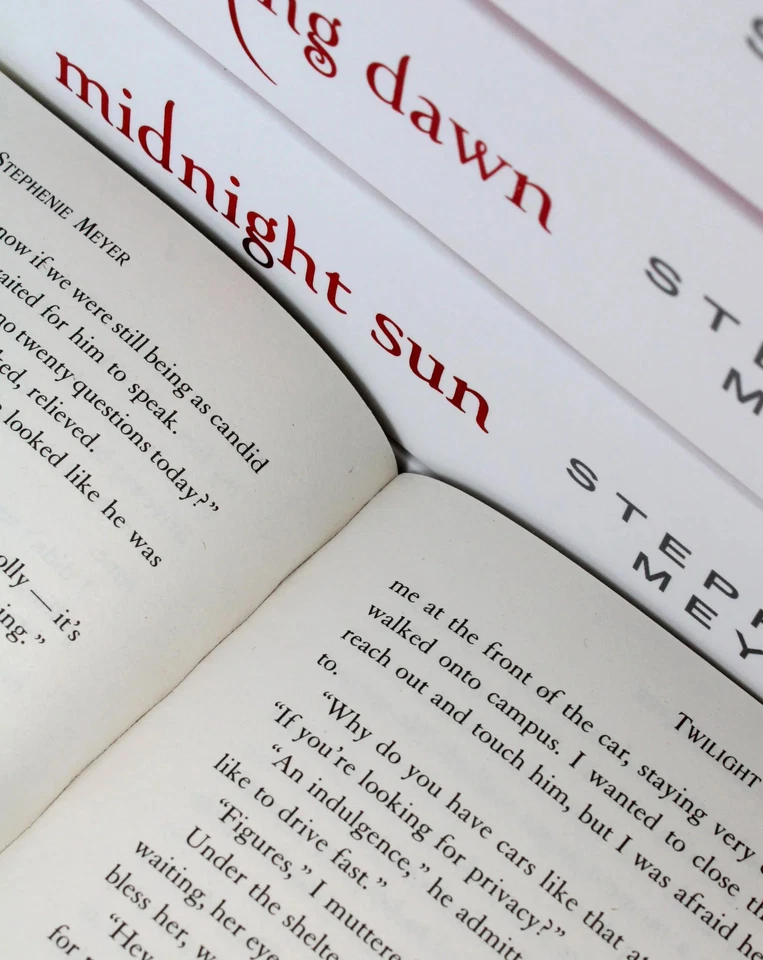 ng dawn
STE
M
midnight sun
STEPH
MEY
STEPHENIE MEYER
now if we were still being as candid
aited for him to speak.
no twenty questions today?”
ked, relieved.
looked like he was
olly — it’s
ing.”
TWILIGHT
me at the front of the car, staying very
walked onto campus. I wanted to close th
reach out and touch him, but I was afraid he
to.
“Why do you have cars like that at
“If you’re looking for privacy?”
“An indulgence,” he admitt
like to drive fast.”
“Figures,” I muttere
Under the shelte
waiting, her eye
bless her, w
“Hey
for